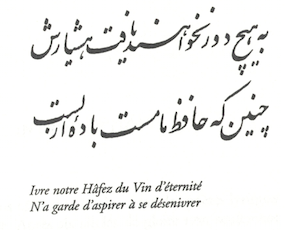 به هیچ دور نخواهند یافت هشیارش
چنین که حافظ ما مست باده ازلست
Ivre notre Hâfez du Vin d'éternité
N'a garde d'aspirer à se désenivrer